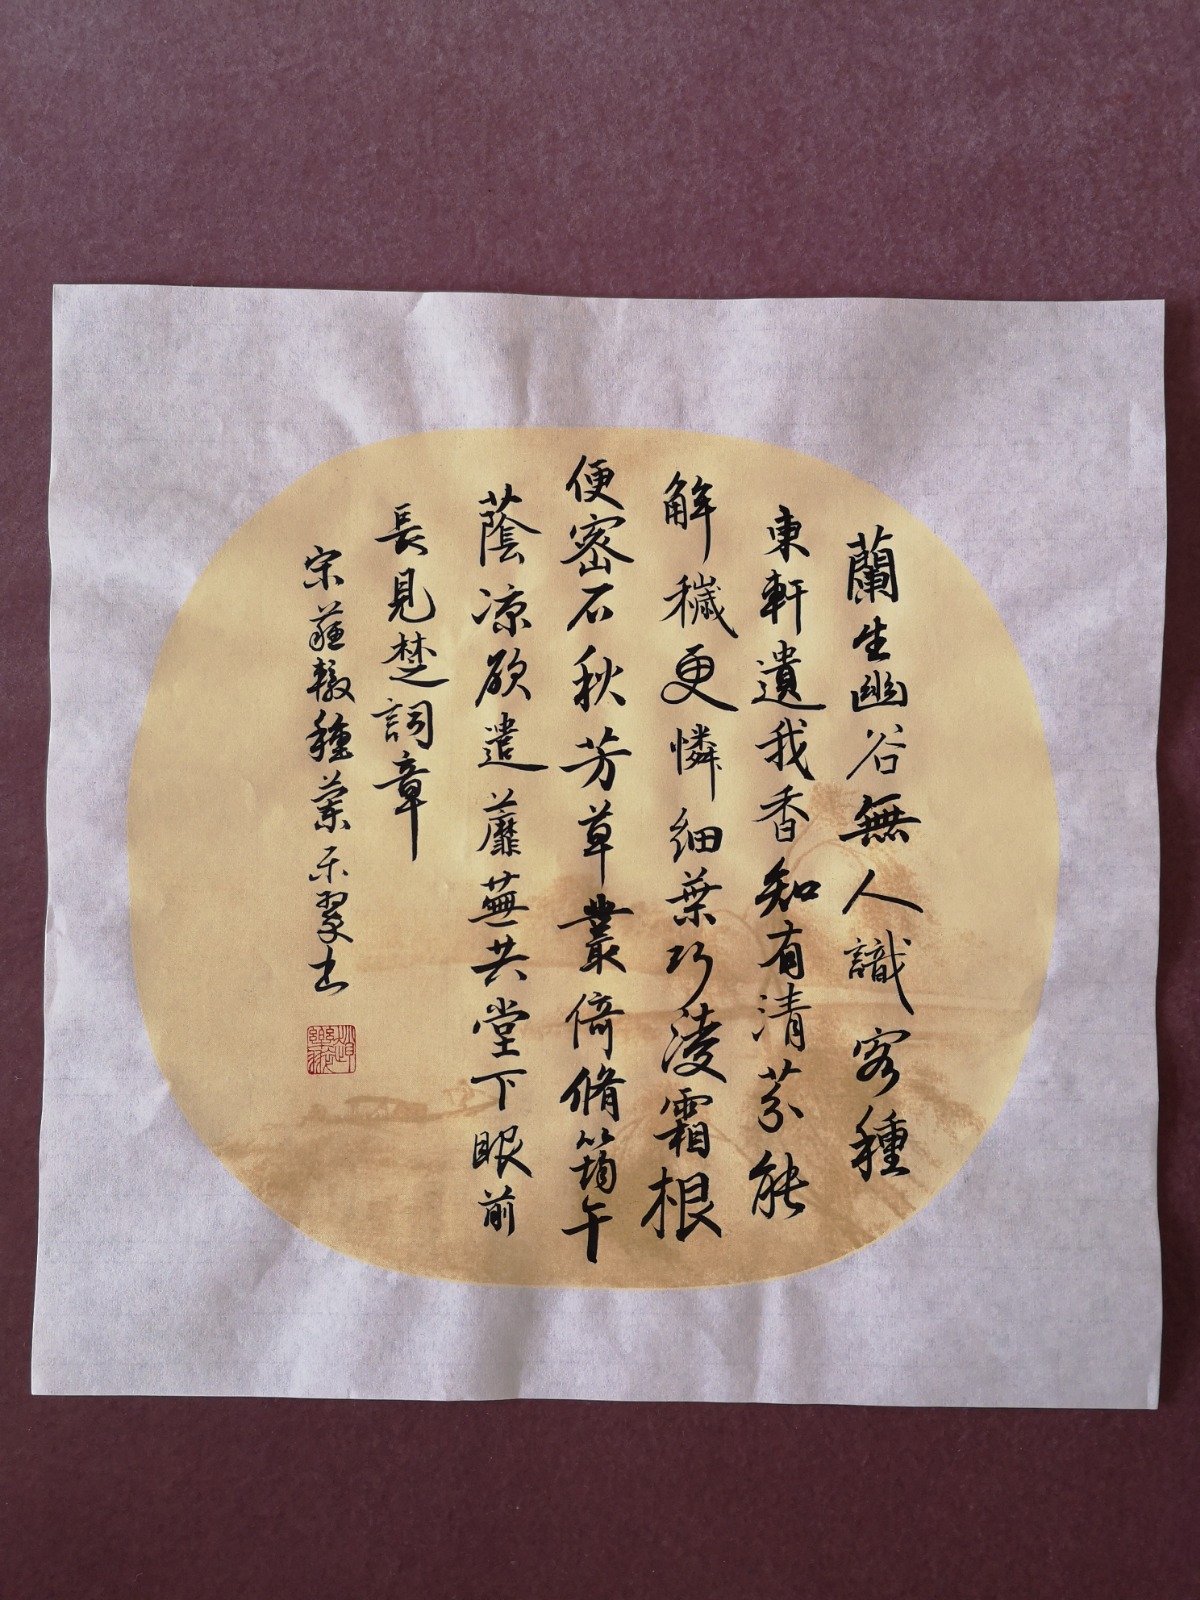 蘭生幽谷無人識客種
東軒遺我香知有清芬能
解穢更憐細葉巧淩霜根
便密石秋芳草叢倚脩筠午
蔭凉欲遣蘼蕪共堂下眼前
長見楚詞章
宋蘇轍種蘭樂翠書